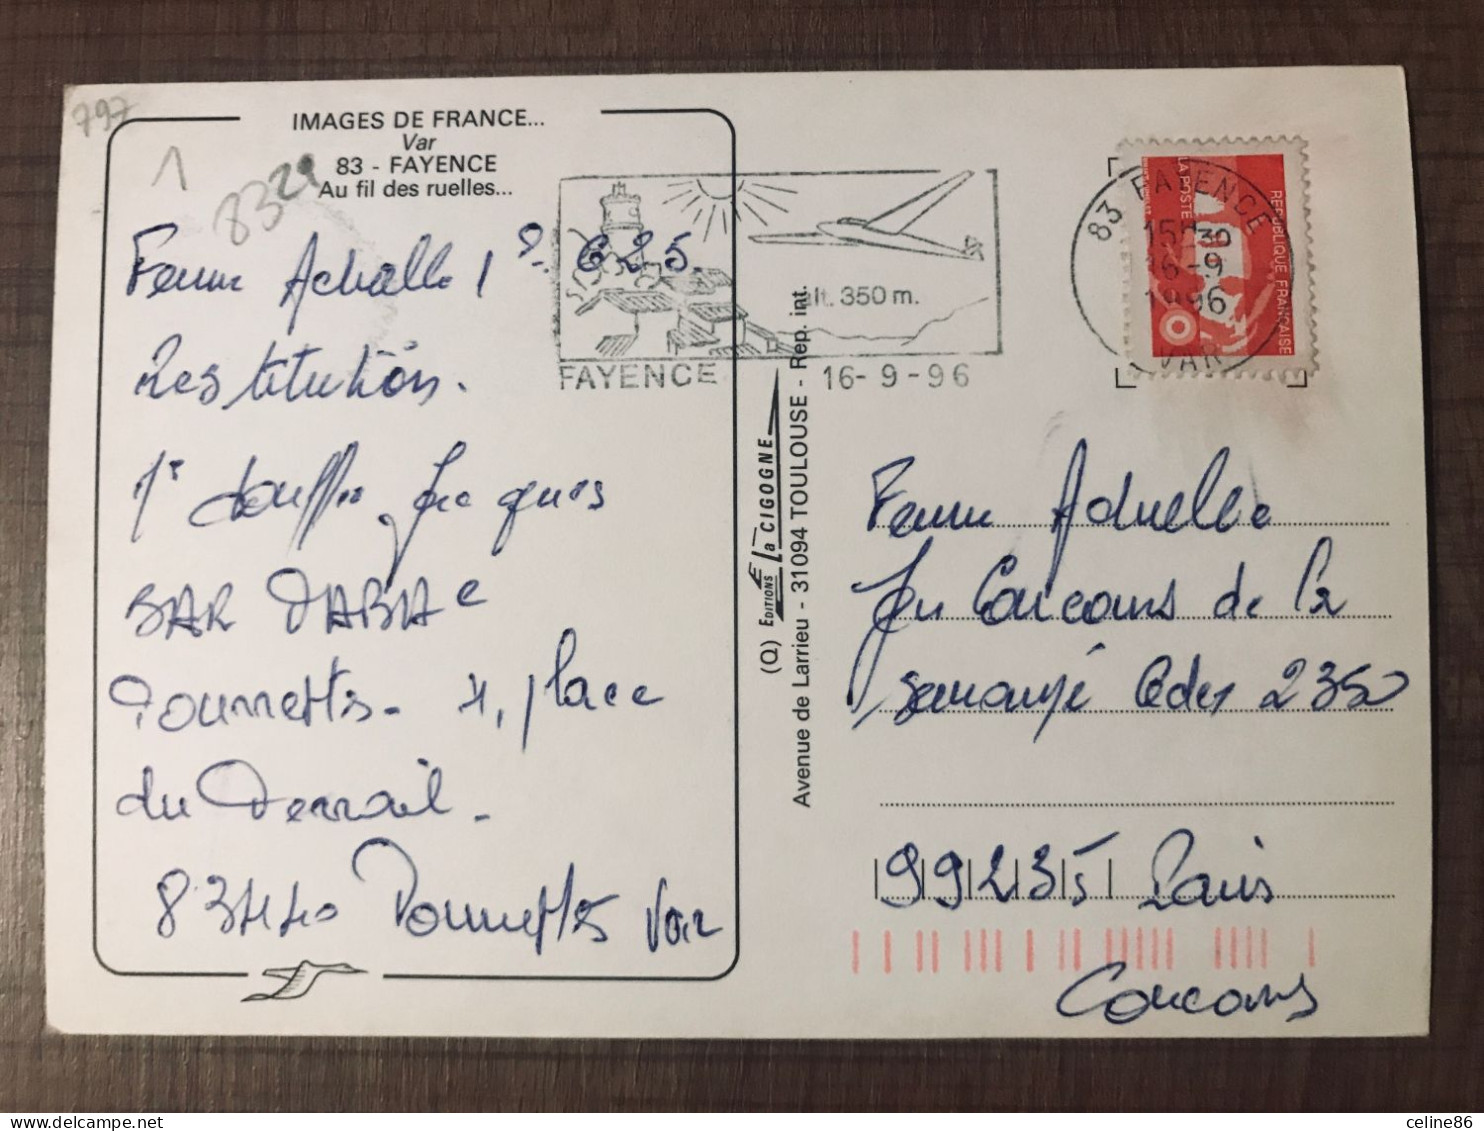 797
1
8329
IMAGES DE FRANCE...
Var
83 - FAYENCE
Au fil des ruelles...
Femme Actuelle n° 625.
restitution.
Jacques
BAR TABAC
Tourrettes - 4, place
du
83440 Tourrettes Var
FAYENCE
alt. 350 m.
16-9-96
83 FAYENCE
15H30
16-9
1996
VAR
LA POSTE
REPUBLIQUE FRANÇAISE
(Q) EDITIONS La CIGOGNE
Avenue de Larrieu - 31094 TOULOUSE - Rep. int.
Femme Actuelle
Jeu Concours de la
semaine Cedex 2350
99235 Paris
Concours
celine86